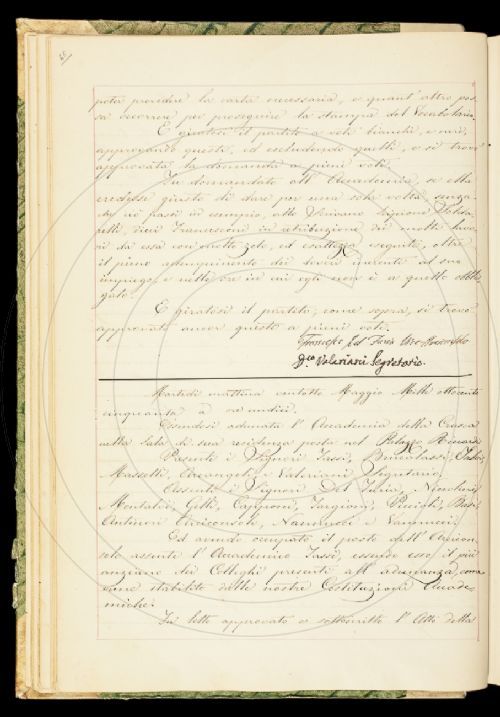 potea provedere la carta necessaria, e quant' altro pos-
sa occorrere per proseguire la stampa del Vocabolario.
E giratosi il partito a voti bianchi, e neri,
approvando questi, ed escludendo quelli, e si trovò
approvata la domanda a pieni voti.
Fu domandato all' Accademia, se ella
credesse giusto di dare per una sola volta senza
che ciò passi in esempio, allo Scrivano Signore
dieci Francesconi in retribuzione dei molti lavo-
ri da esso con molto zelo, ed esattezza eseguiti, oltre
il pieno adempimento dei doveri inerenti al suo
impiego, e nelle ore in cui egli non è a quello obbli-
gato.
E giratosi il partito, come sopra, si trovò
approvato ancor questo a pieni voti.
Francesco Del Furia
Valeriani Segretario.
Martedì mattina ventotto Maggio Mille ottocento
cinquanta a ore undici.
Essendosi adunata l' Accademia della Crusca
nella Sala di sua residenza posta nel Palazzo Riccardi
Presenti i Signori Tassi, Brucalassi,
Masselli, Arcangeli, Valeriani Segretario.
Assenti i Signori Del Furia, Niccolini,
Montalvi, Gelli, Capponi, Targioni, Puccioti,
Antinori Arciconsolo, Nannucci e Vannucci.
Ed avendo occupato il posto dell' Arcicon-
solo assente l' Accademico Tassi, essendo esso il più
anziano dei Colleghi presenti all' adunanza, come
viene stabilito dalle nostre Costituzioni Accade-
miche:
Fu letto approvato e sottoscritto l' Atto della